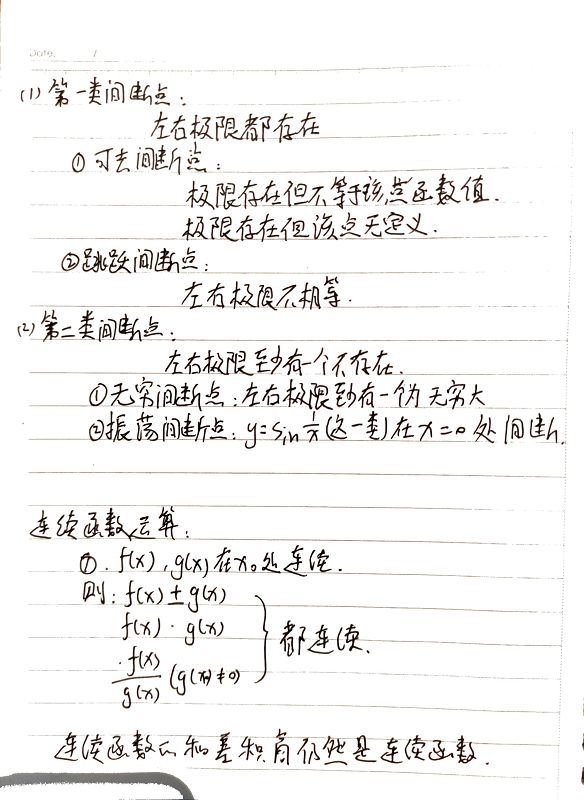 Date. /
(1) 第一类间断点:
左右极限都存在
① 可去间断点:
极限存在但不等于该点函数值.
极限存在但该点无定义.
②跳跃间断点:
左右极限不相等.
(2) 第二类间断点:
左右极限至少有一个不存在.
①无穷间断点:左右极限至少有一个为无穷大
②振荡间断点: y=sin 1/x (这一类) 在 x=0 处间断.
连续函数运算:
①. f(x), g(x) 在 x₀ 处连续.
则: f(x) ± g(x)
f(x) · g(x)
f(x)/g(x) (g(x)≠0)
都连续.
连续函数的和差积商仍然是连续函数.